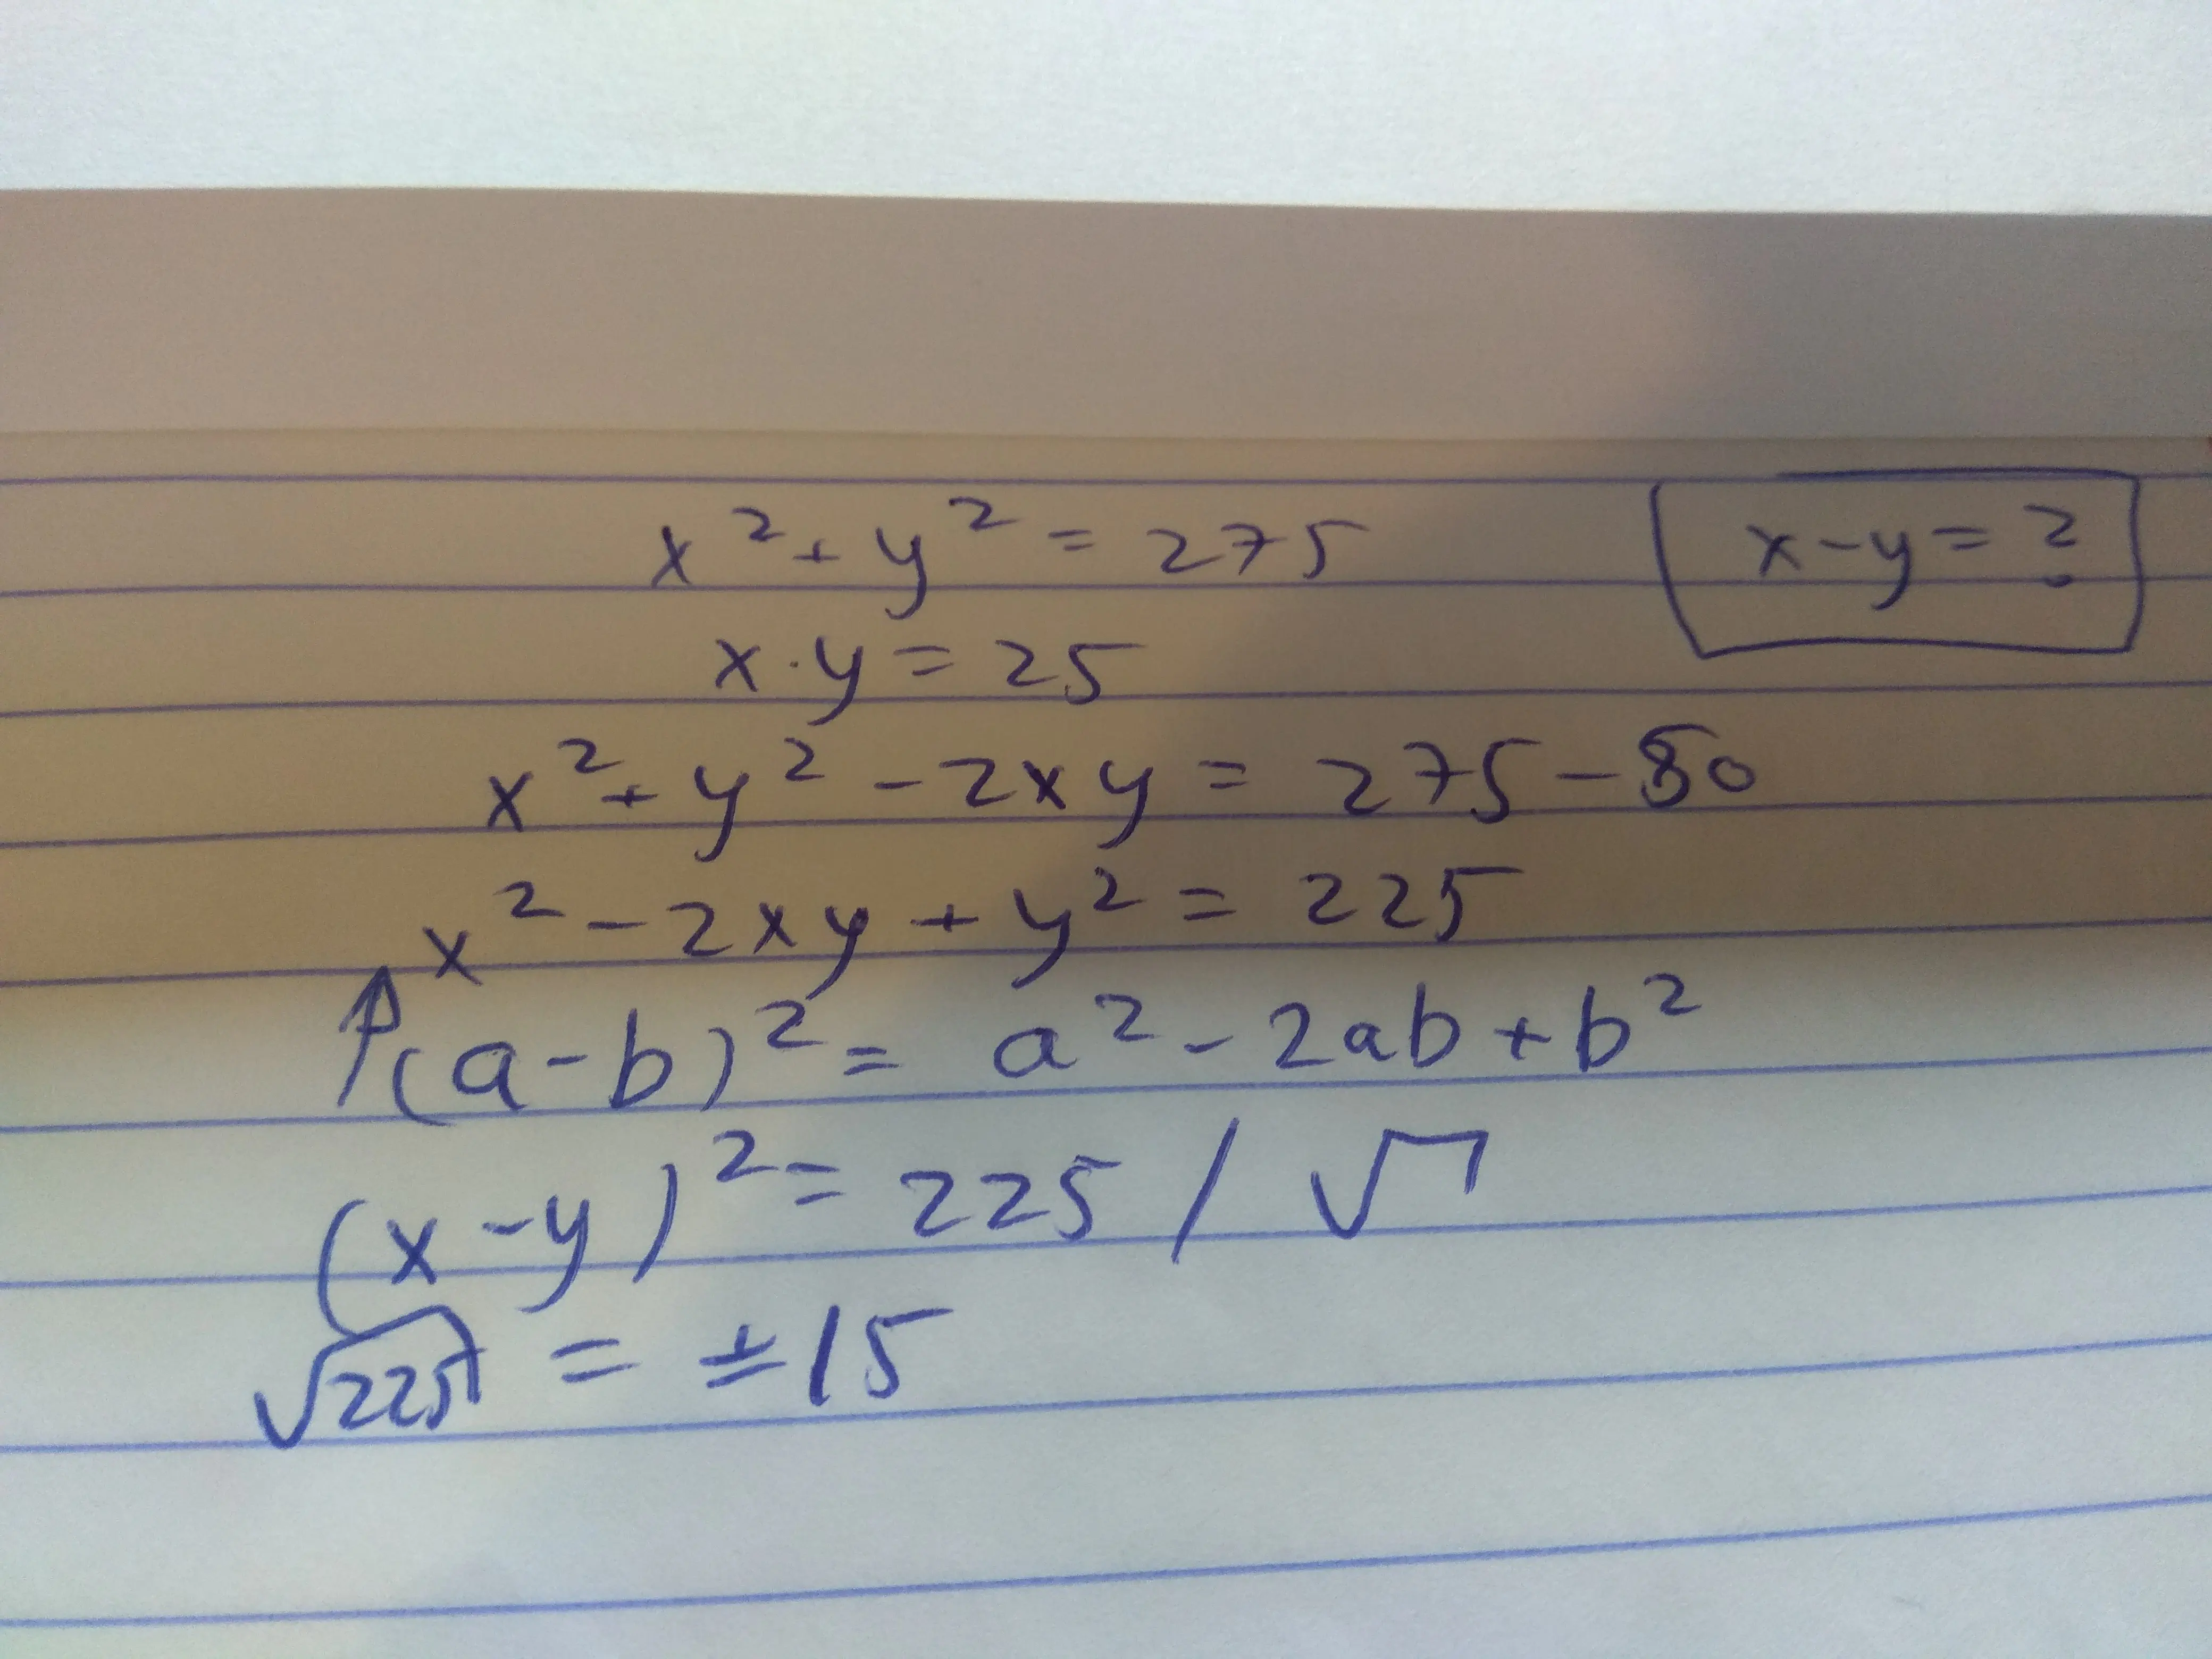 x² + y² = 275
x - y = ?
x · y = 25
x² + y² - 2xy = 275 - 50
x² - 2xy + y² = 225
↑(a - b)² = a² - 2ab + b²
(x - y)² = 225 / √
√225 = ±15